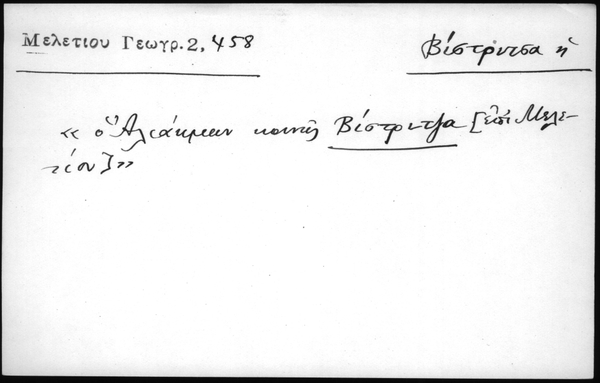 Μελετιου Γεωγρ. 2, 458
Βίστριτσα ἡ
« ὁ Ἁλιάκμων κοινῶς Βίστριτζα [ἐπὶ Μελε-
τίου]»